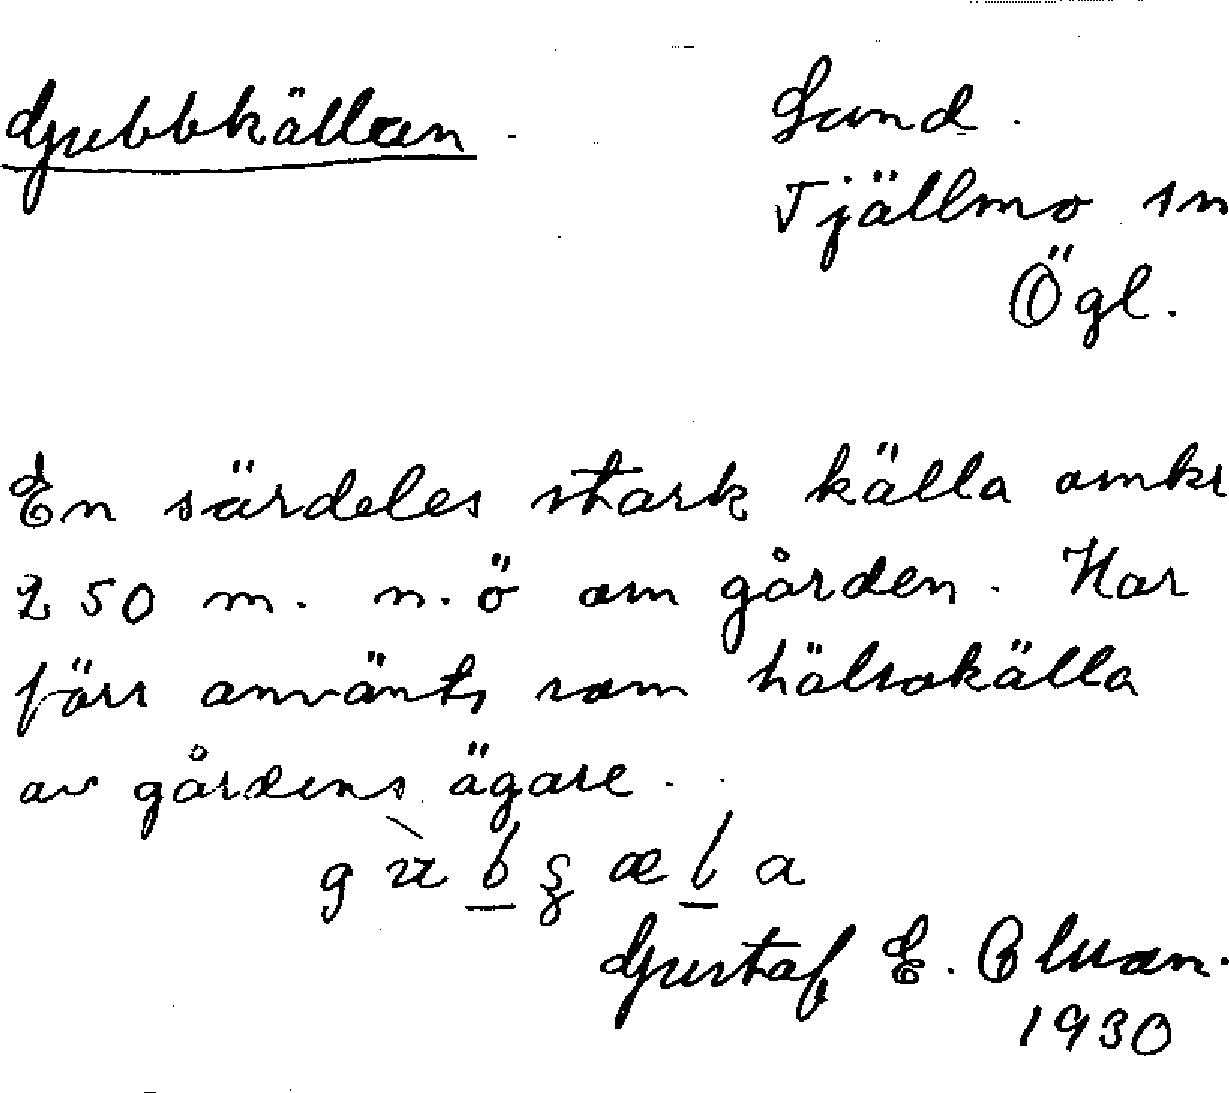 Gubbkällan
Lund.
Tjällmo sn
Ögl.
En särdeles stark källa omkr
250 m. n.ö om gården. Har
förr använts som hälsokälla
av gårdens ägare.
Gustaf E.
1930